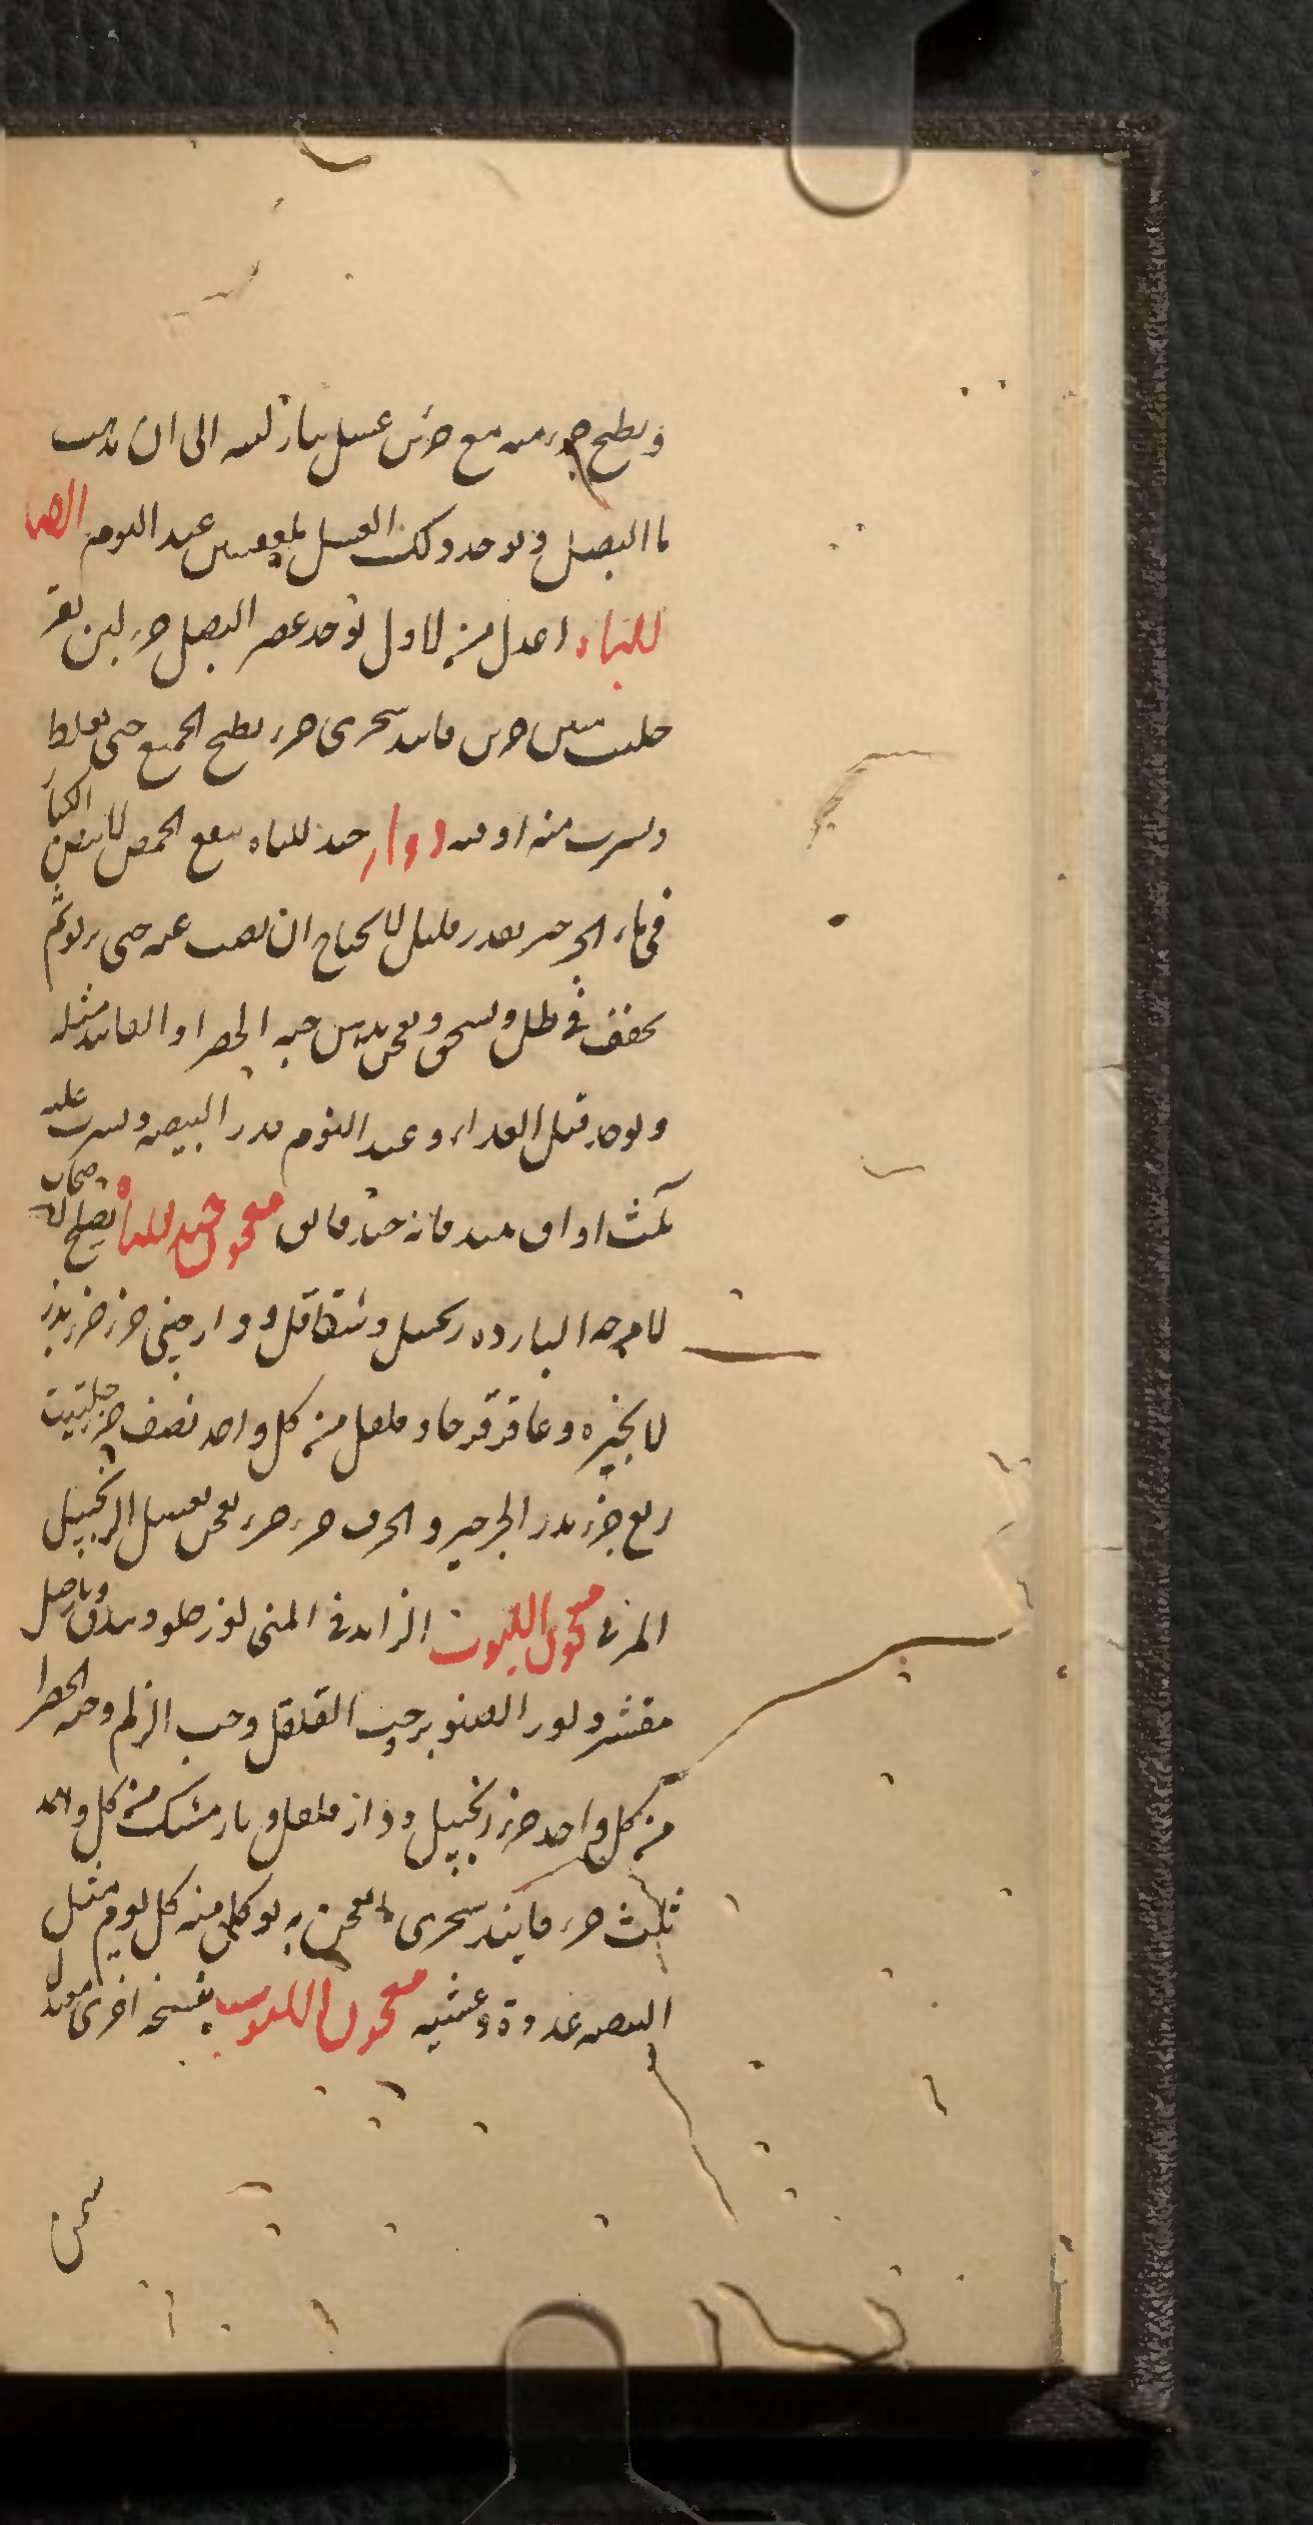 ويطبخ جزء منه مع جزئين عسل بنار لينه الى ان يذهب
ما البصل ويوخذ ذلك العسل ملعقتين عند النوم ايضا
للباه اعدل من الاول يوخذ عصر البصل جزء لبن بقر
حليب مثل جزئين فانيد سحرى جزء يطبخ الجميع حتى يغلظ
ويشرب منه اوقيه دواء جيد للباه ينقع الحمص الابيض الكبار
فى ماء الجرجير بقدر قليل لا يحتاج ان يصب عنه حتى يربو ثم
يجفف فى ظل ويسحق ويعجن بدبس حبه الخضرا او الفانيد مثله
ويوخذ قبل الغداء وعند النوم قدر البيضه ويشرب عليه
ثلث اواق نبيذ فانه جيد فائق معجون جيد للباه يصلح لاصحاب
الامزجه البارده زنجبيل وشقاقل ودارصينى جزء جزء بزر
الانجره وعاقرقرحا وفلفل من كل واحد نصف جزء حلتيت
ربع جزء بزر الجرجير والجزر جزء جزء يعجن بعسل الزنجبيل
المربى معجون اللبوب الزايد فى المنى لوز حلو وبندق ونارجيل
مقشر ولوز الصنوبر حب القلقل وحب الزلم وحبه الخضرا
من كل واحد جزء زنجبيل ودار فلفل ونارمشك من كل واحد
ثلث جزء فانيد سحرى ما يعجن به يوكل منه كل يوم مثل
البيضه غدوة وعشيه معجون اللبوب بنسخه اخرى مفيد ل
سمن